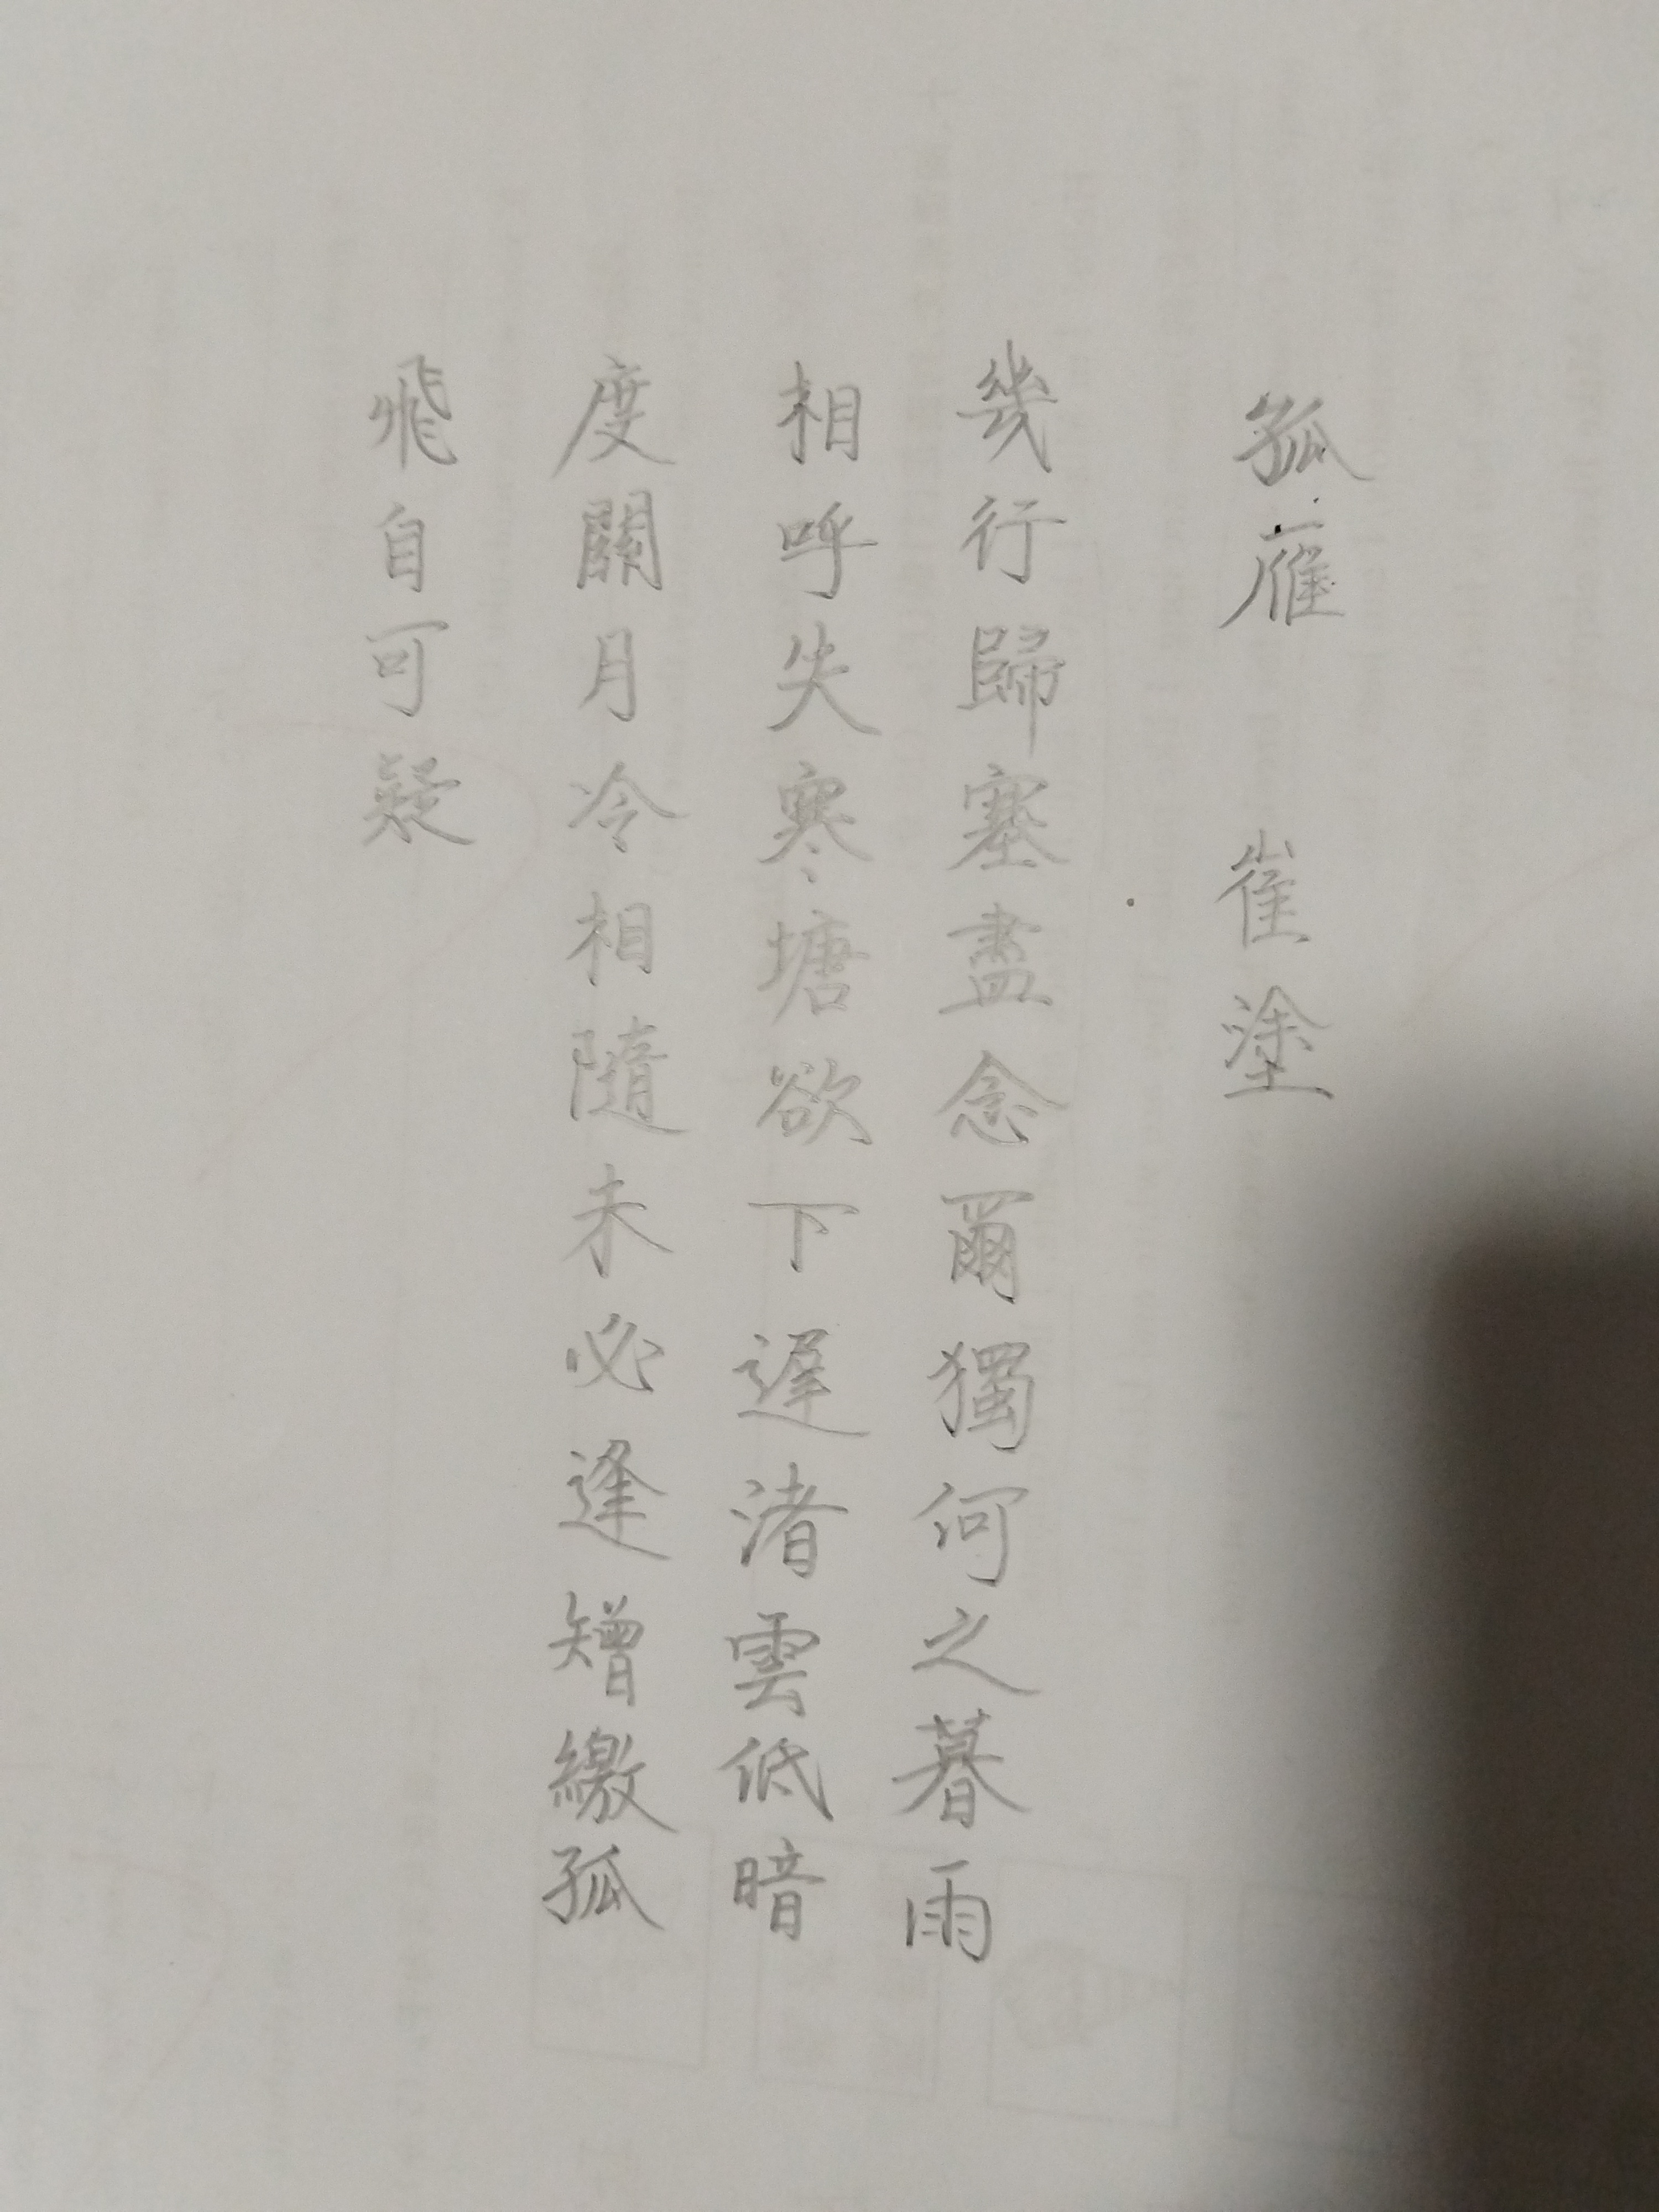 孤雁 崔塗
幾行歸塞盡念爾獨何之暮雨
相呼失寒塘欲下遲渚雲低暗
度關月冷相隨未必逢矰繳孤
飛自可疑